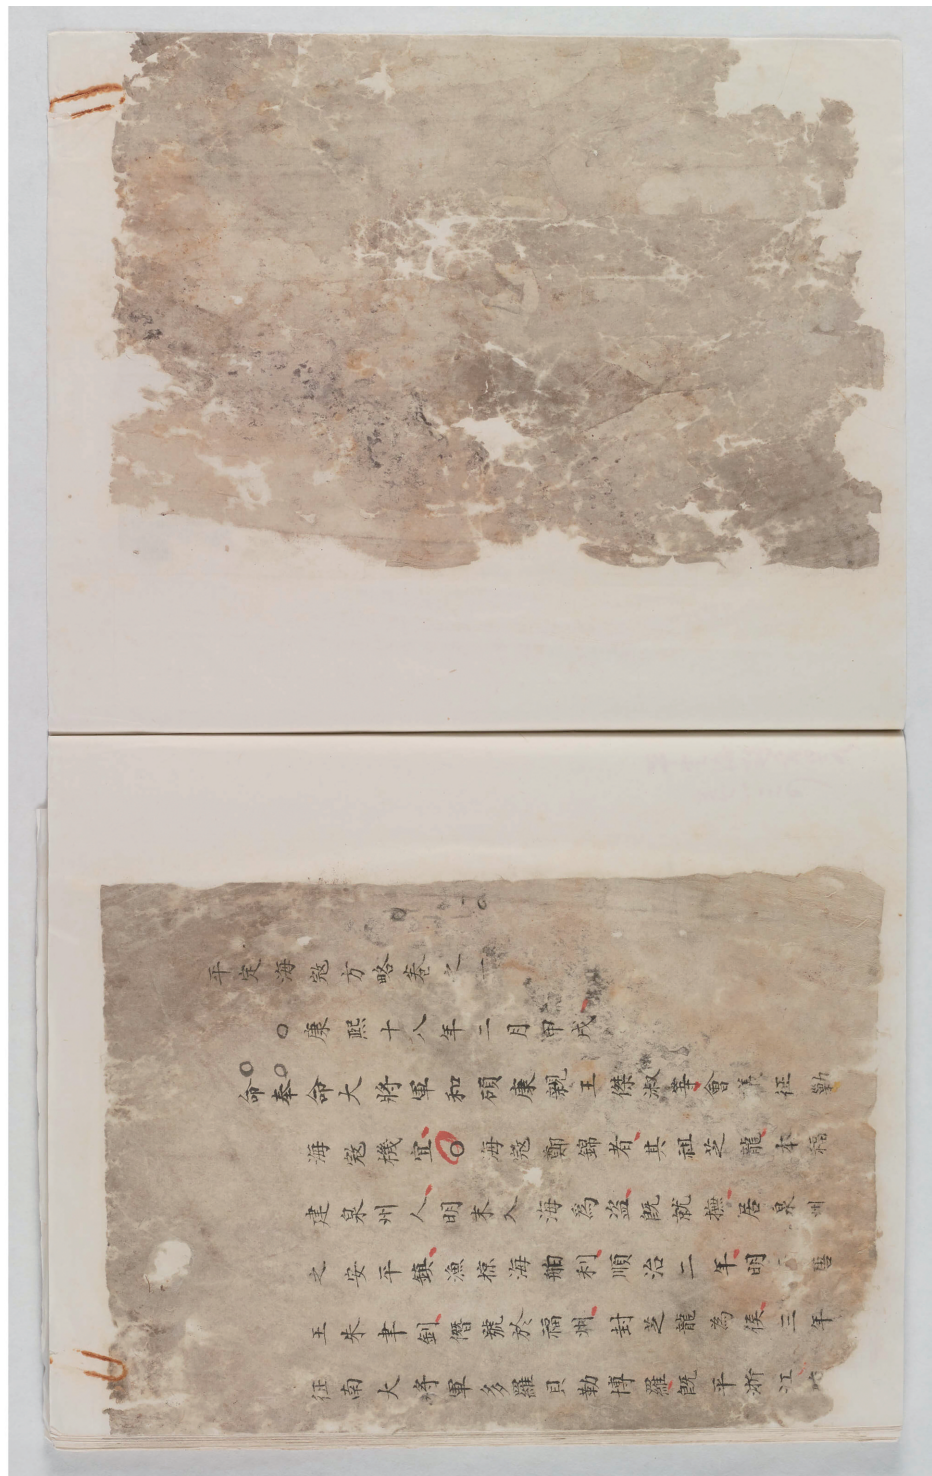 平定海寇方略卷之一
康熙十八年三月甲戌
命奉命大將軍和碩康親王傑淑等會議征勦
海寇機宜海寇鄭錦者其祖芝龍本福
建泉州人明末入海為盜既就撫居泉州
之安平鎮漁掠海舶利順治二年明唐
王朱聿釗僭號於福州封芝龍為侯三年
征南大將軍多羅貝勒博羅既平浙江